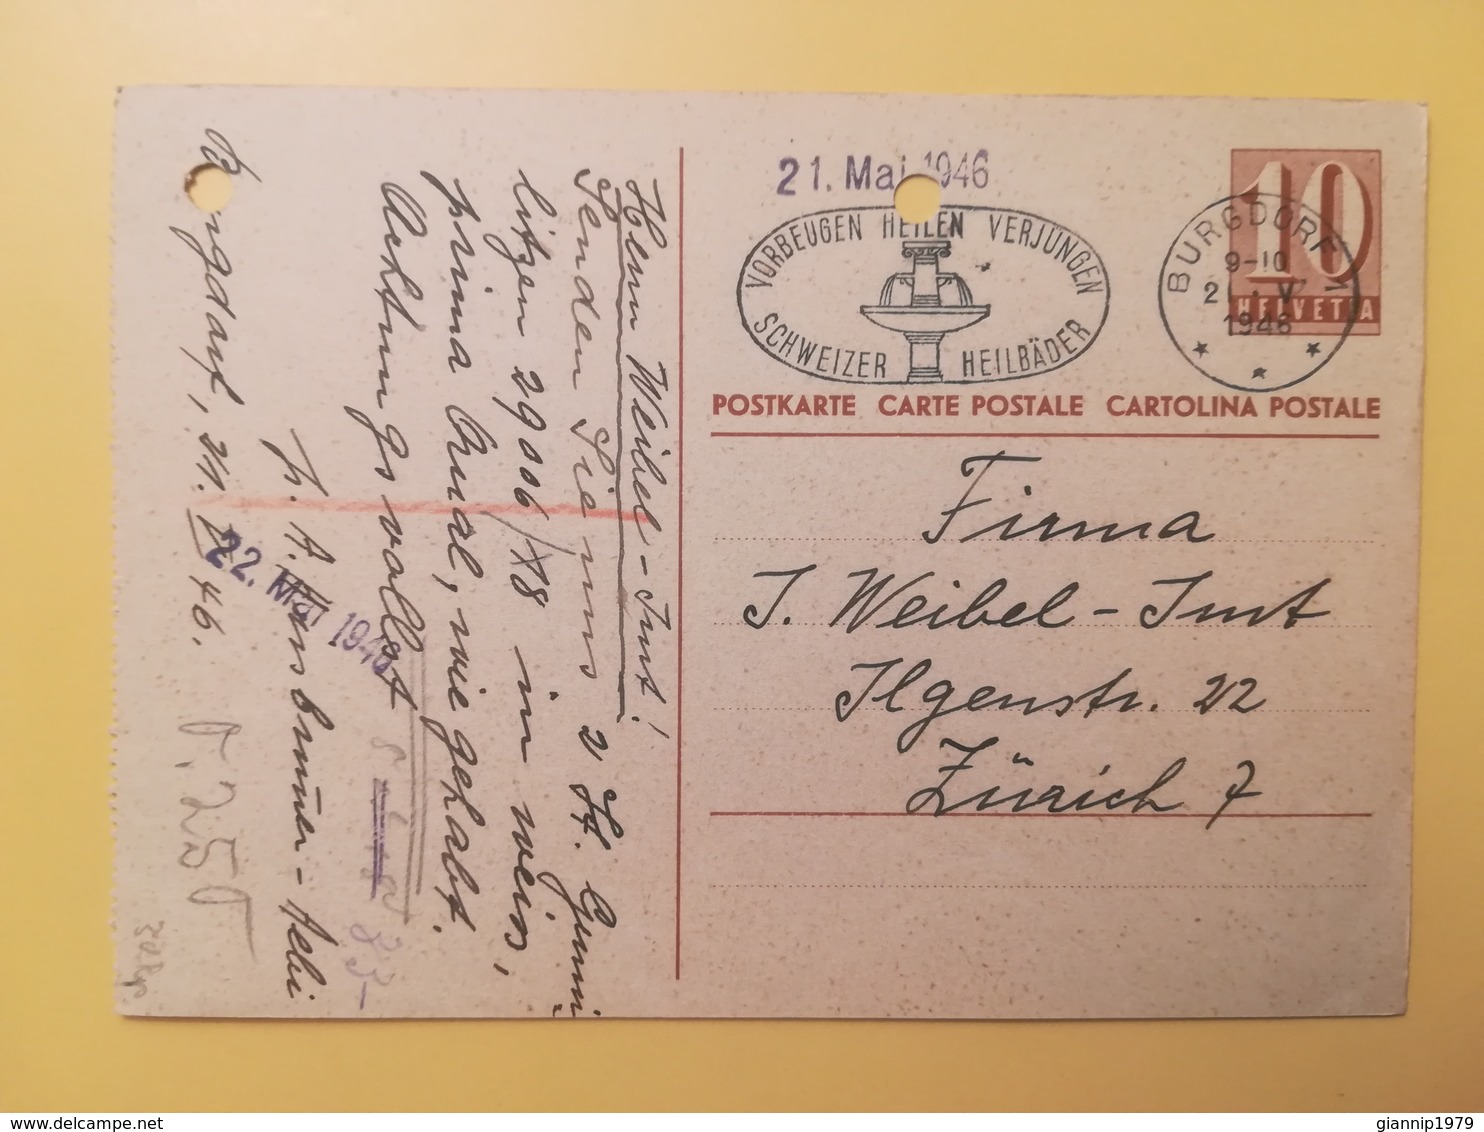 21. Mai 1946
VORBEUGEN HEILEN VERJÜNGEN
SCHWEIZER HEILBÄDER
BURGDORF 1
9-10
21. V
1946
10
HELVETIA
POSTKARTE CARTE POSTALE CARTOLINA POSTALE
Firma
J. Weibel - Imt
Ilgenstr. 22
Zürich 7
Herrn Weibel - Imt!
Senden Sie uns 2 St. Gummi-
litzen 29006/X8 in weiss,
prima Qual, wie gehabt.
Achtungsvollst
Brunner - Aebi
Burgdorf, 21. V. 46.
22. Mai 1946
30Rp
delcampe.net
giannip1979